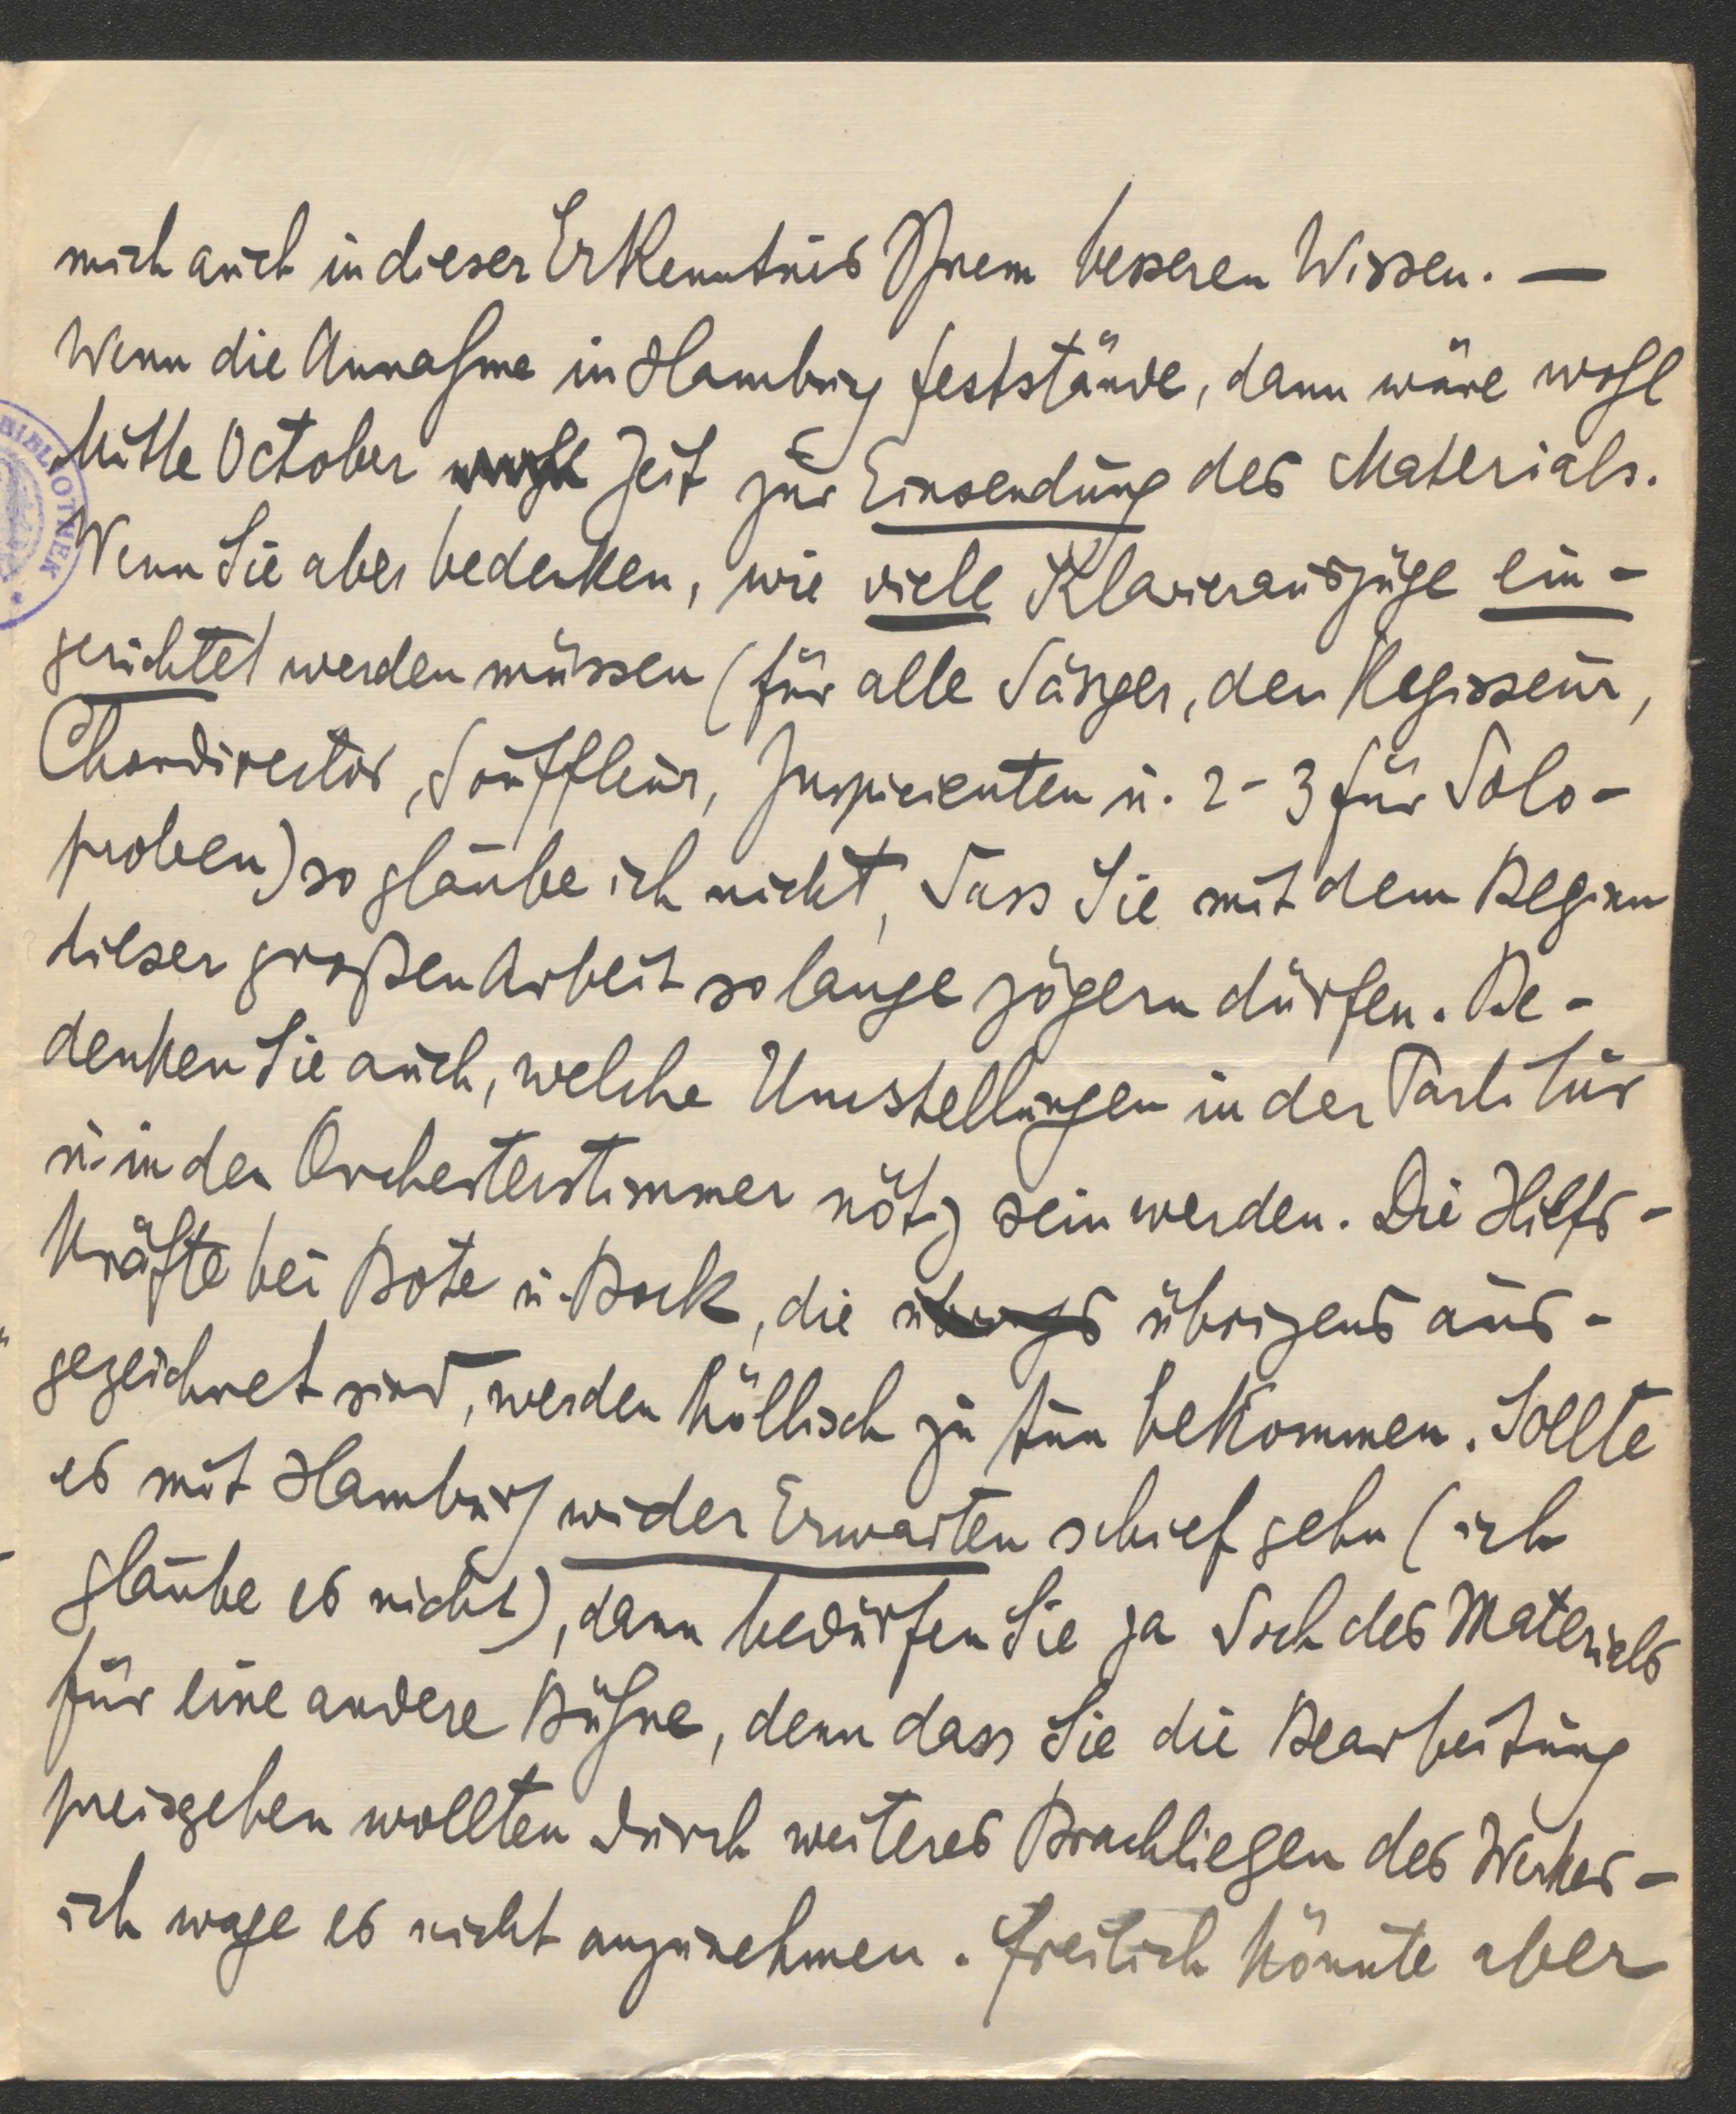 mich auch in dieser Erkenntnis Ihrem besseren Wissen. —
Wenn die Annahme in Hamburg feststände, dann wäre wohl
Mitte October wohl Zeit zur Einsendung des Materials.
Wenn Sie aber bedenken, wie viele Klavierauszüge ein-
gerichtet werden müssen (für alle Sänger, den Regisseur,
Chordirector, Souffleur, Inspicienten u. 2-3 für Solo-
proben) so glaube ich nicht, dass Sie mit dem Beginn
dieser großen Arbeit so lange zögern dürfen. Be-
denken Sie auch, welche Umstellungen in der Partitur
u. in den Orchesterstimmen nötig sein werden. Die Hilfs-
kräfte bei Bote u. Bock, die übrigens übrigens aus-
gezeichnet sind, werden höllisch zu tun bekommen. Sollte
es mit Hamburg wider Erwarten schief gehn (ich
glaube es nicht), dann bedürfen Sie ja doch des Materials
für eine andere Bühne, denn dass Sie die Bearbeitung
preisgeben wollten durch weiteres Brachliegen des Werkes -
ich wage es nicht anzunehmen. Freilich könnte aber
BIBLIOTHEK